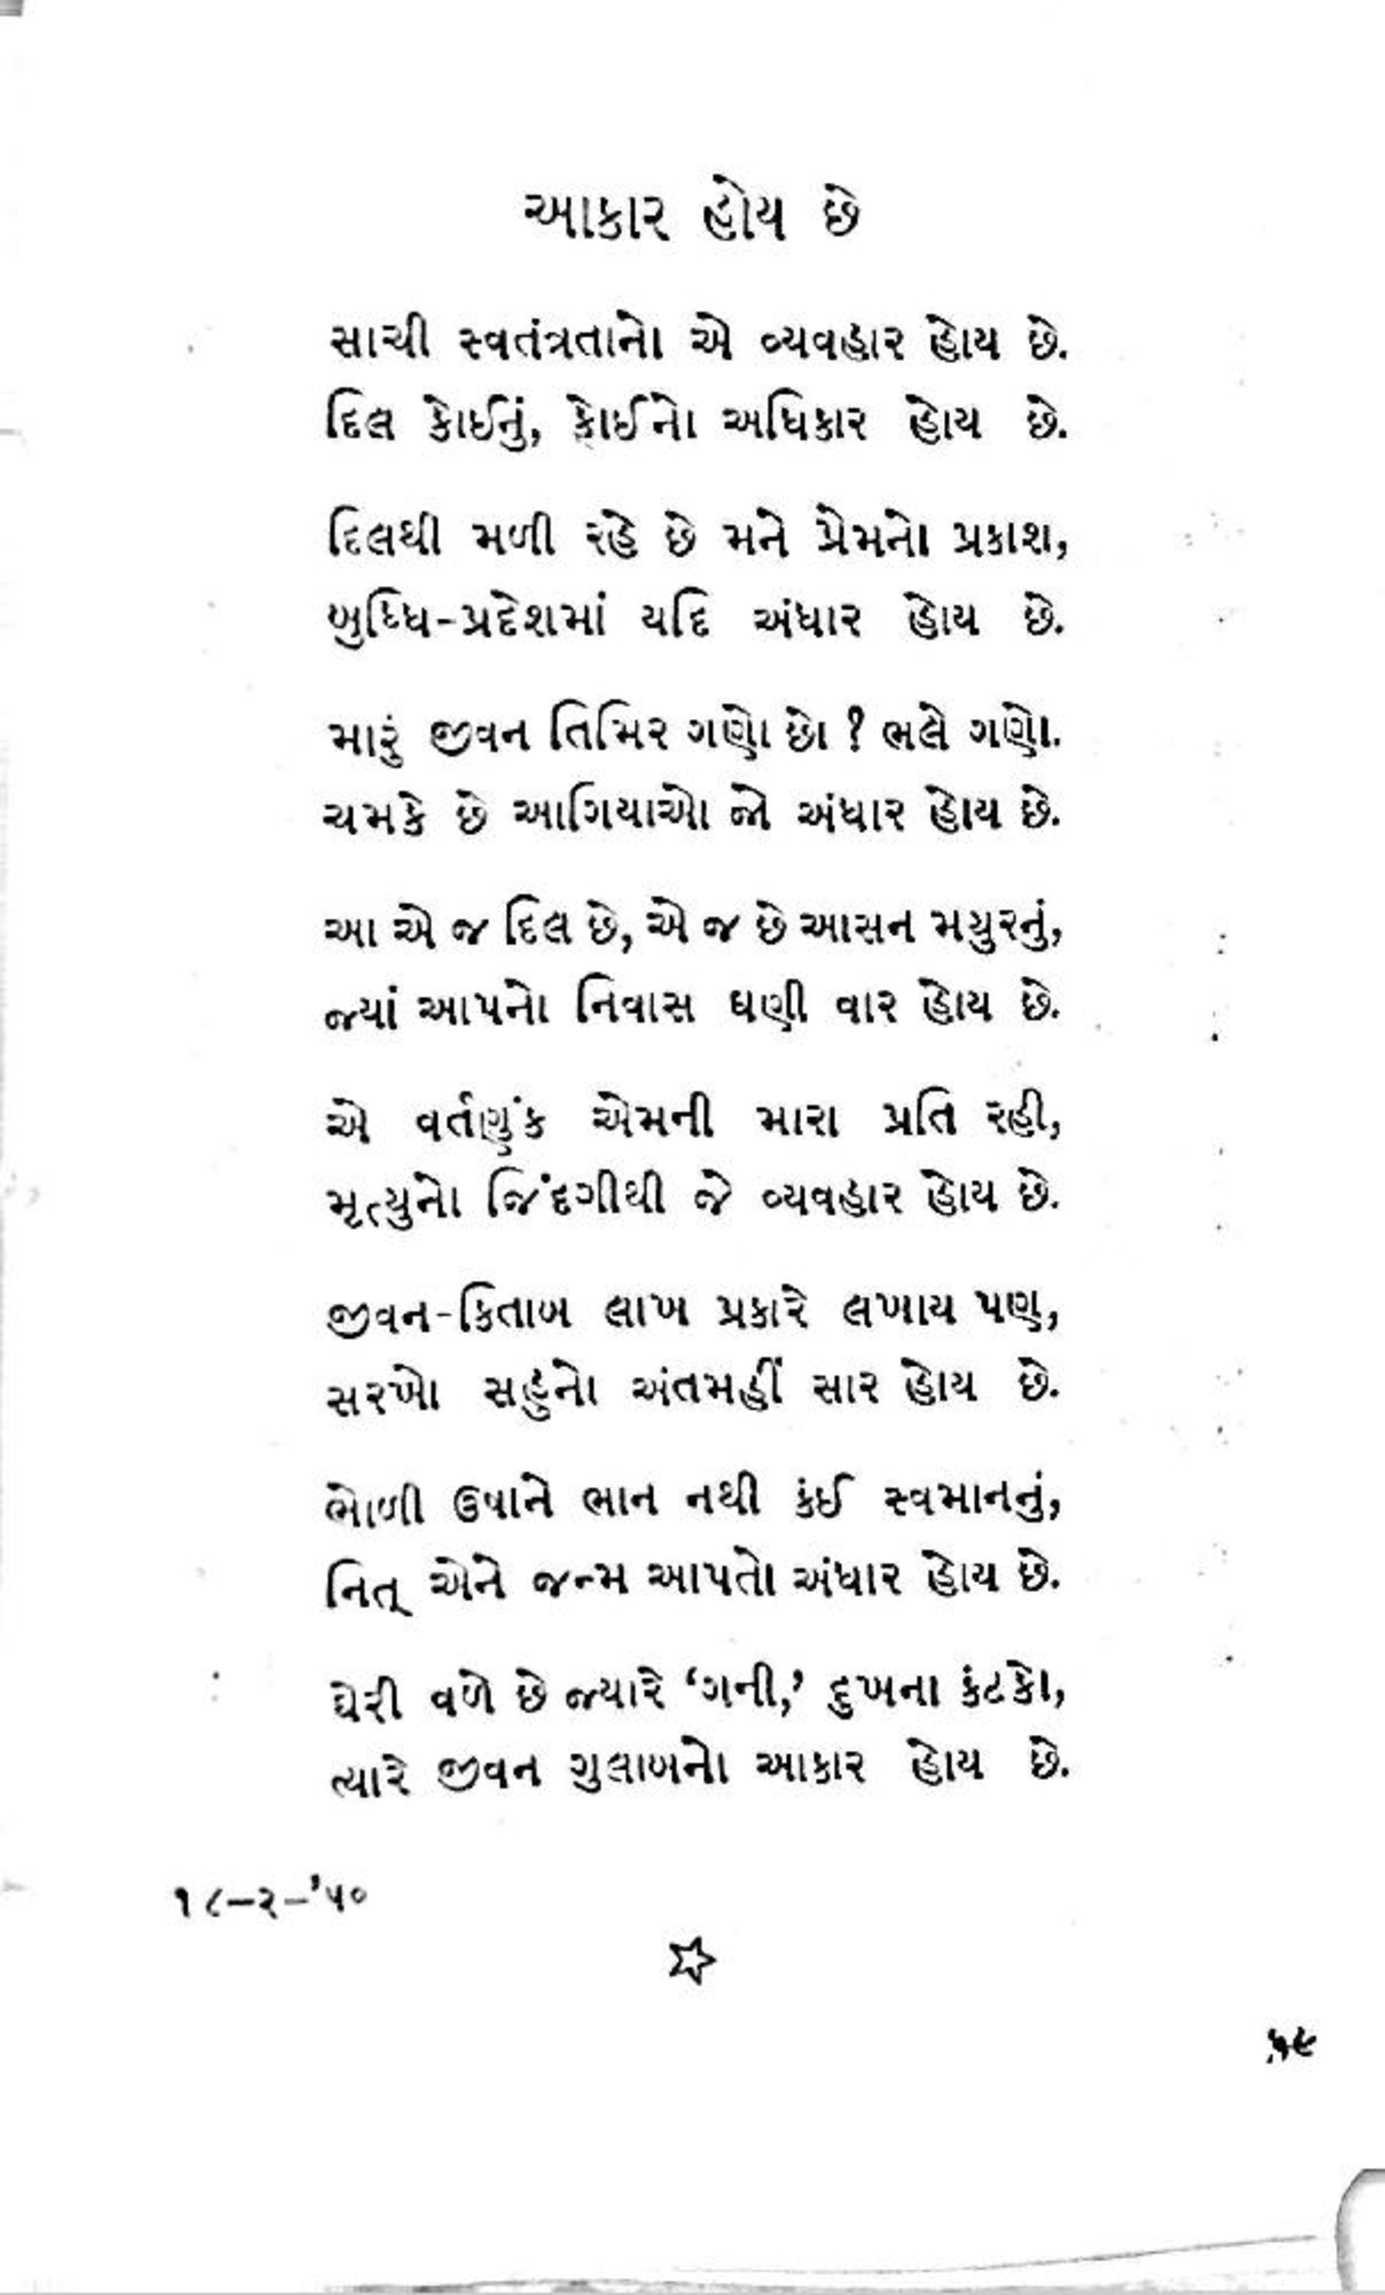 આકાર હોય છે
સાચી સ્વતંત્રતાનો એ વ્યવહાર હોય છે.
દિલ કોઈનું, કોઈનો અધિકાર હોય છે.
દિલથી મળી રહે છે મને પ્રેમનો પ્રકાશ,
બુધ્ધિ-પ્રદેશમાં યદિ અંધાર હોય છે.
મારું જીવન તિમિર ગણો છો ? ભલે ગણો.
ચમકે છે આગિયાઓ જો અંધાર હોય છે.
આ એ જ દિલ છે, એ જ છે આસન મયુરનું,
જ્યાં આપનો નિવાસ ઘણી વાર હોય છે.
એ વર્તણુંક એમની મારા પ્રતિ રહી,
મૃત્યુનો જિંદગીથી જે વ્યવહાર હોય છે.
જીવન-કિતાબ લાખ પ્રકારે લખાય પણ,
સરખો સહુનો અંતમહીં સાર હોય છે.
ભોળી ઉષાને ભાન નથી કંઈ સ્વમાનનું,
નિત્ એને જન્મ આપતો અંધાર હોય છે.
ઘેરી વળે છે જ્યારે ‘ગની,’ દુખના કંટકો,
ત્યારે જીવન ગુલાબનો આકાર હોય છે.
૧૮–૨–’૫૦
૫૯